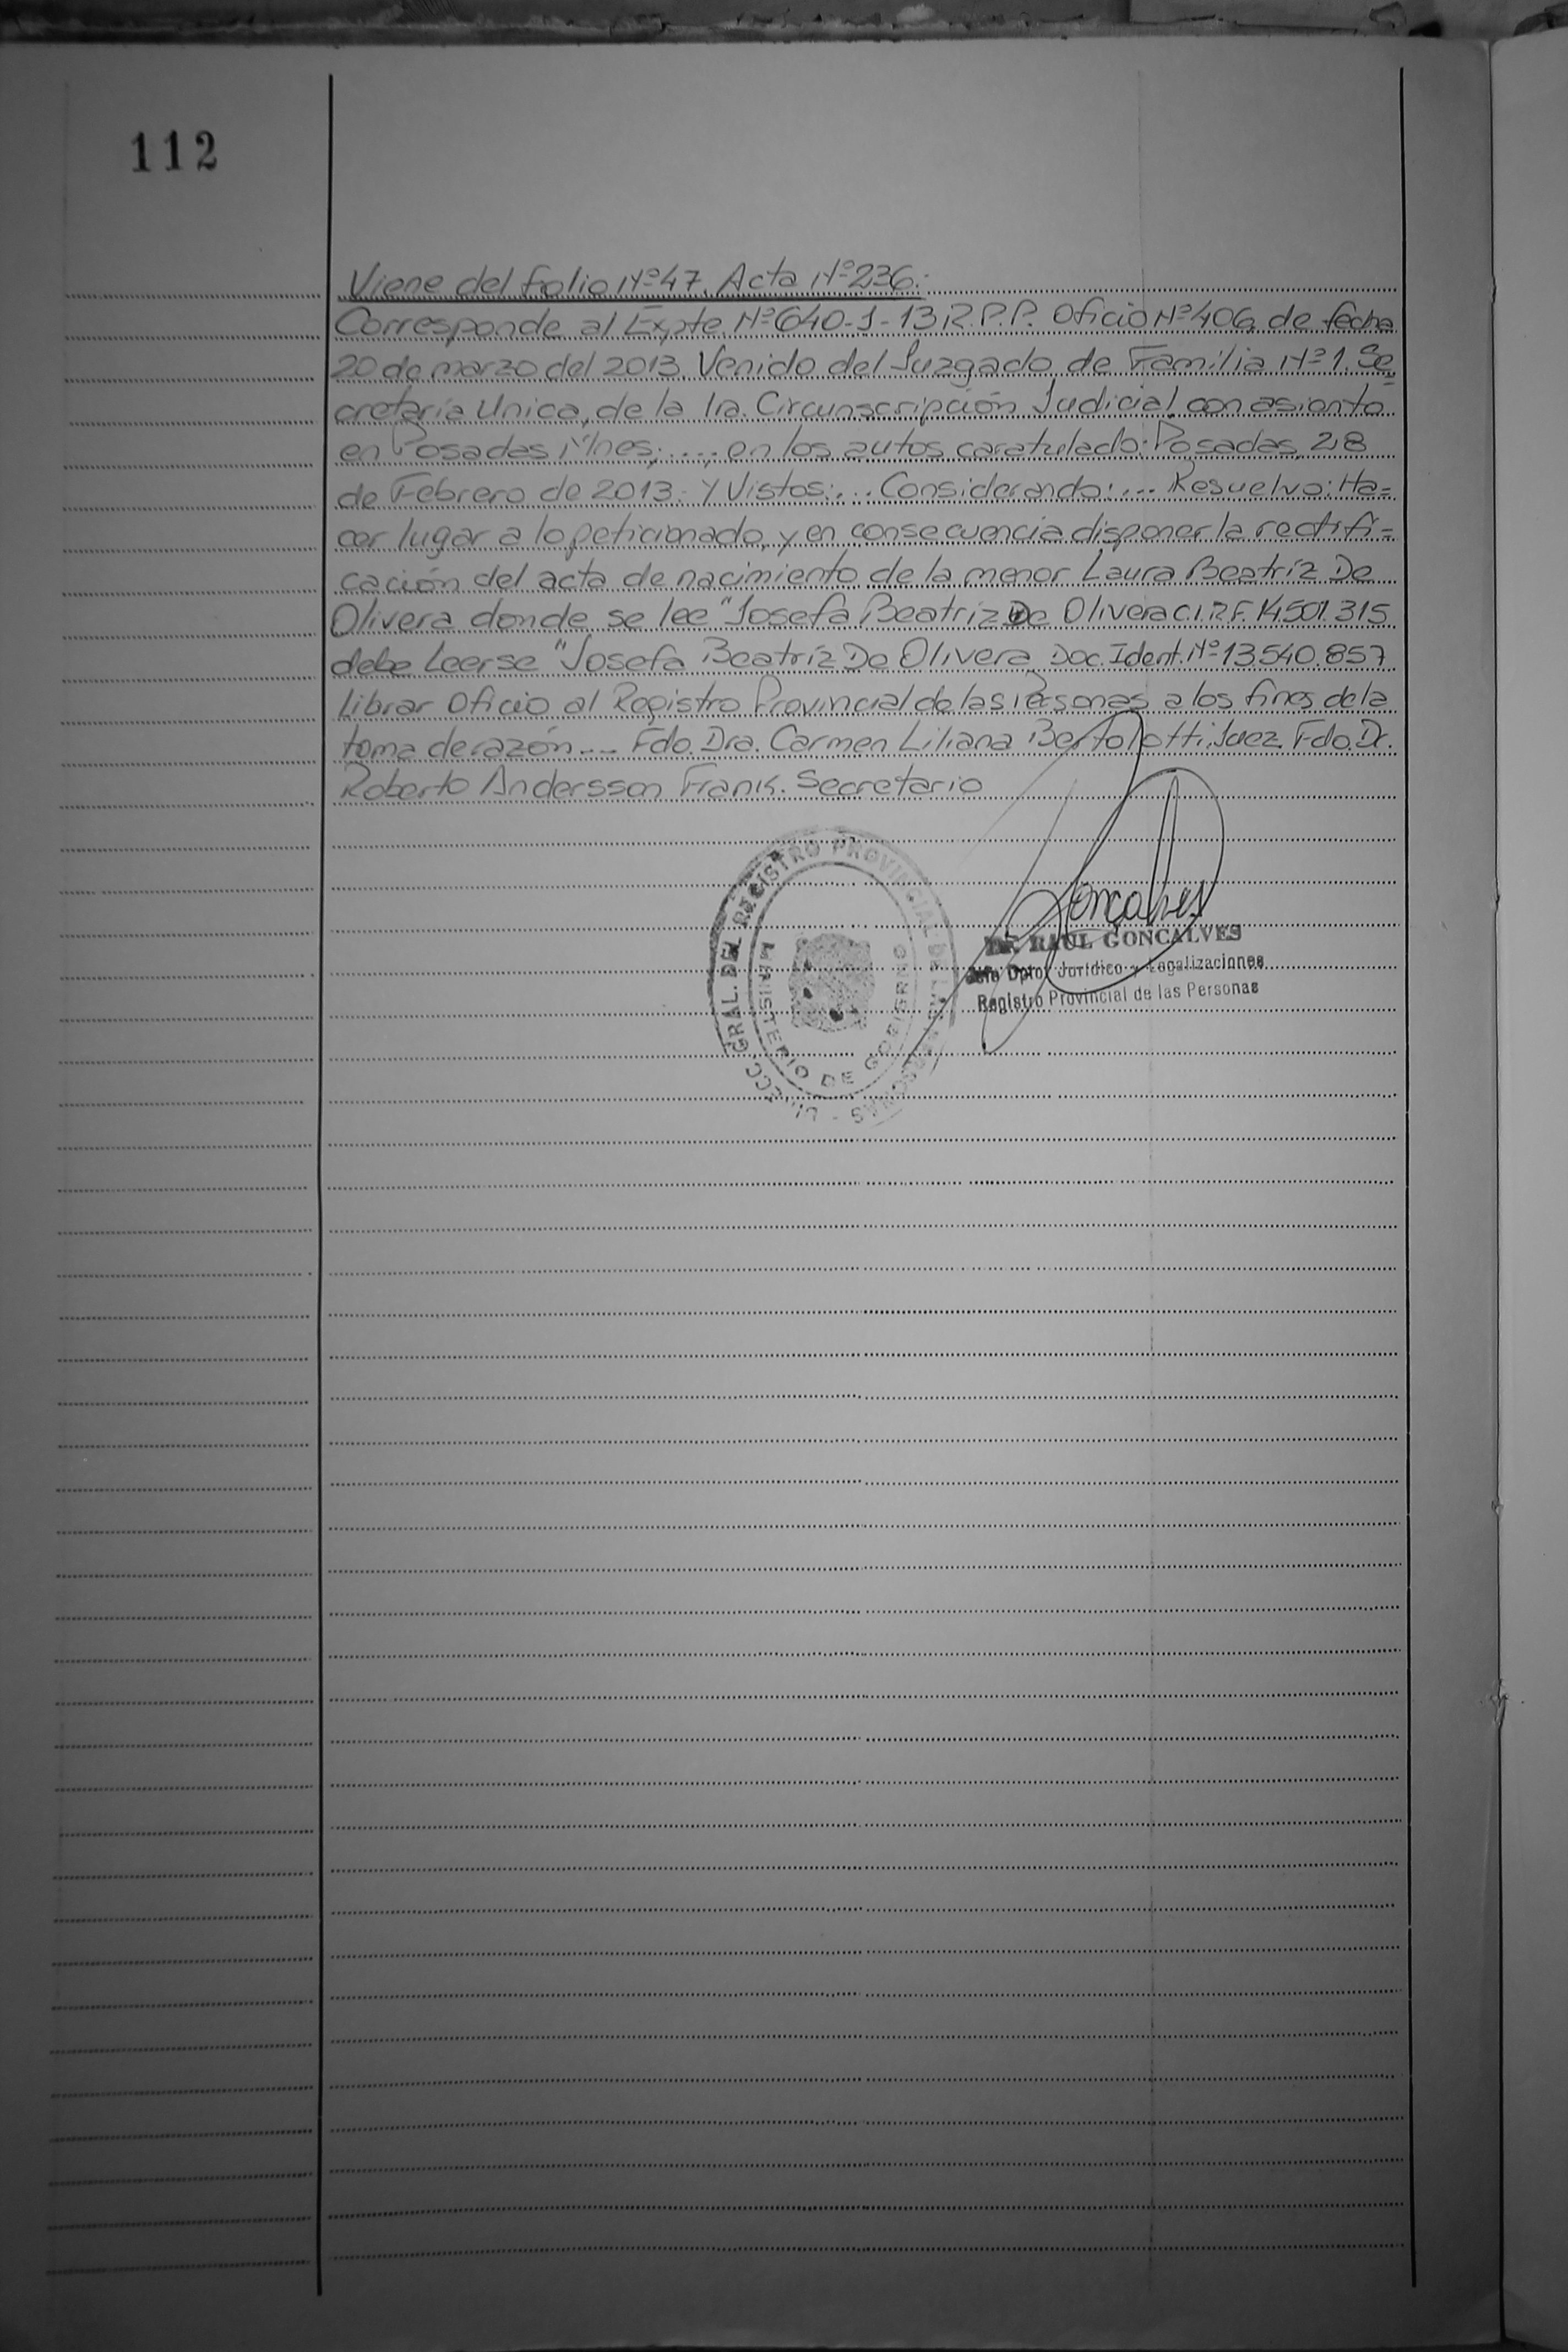 112
Viene del folio Nº47. Acta Nº236:
Corresponde al Expte. Nº640-J-13 R.P.P. Oficio Nº406, de fecha
20 de marzo del 2013. Venido del Juzgado de Familia Nº1. Se
cretaría Unica, de la 1ra. Circunscripción Judicial, con asiento
en Posadas Mnes; ..., en los autos caratulado: Posadas, 28
de Febrero de 2013. Y Vistos:... Considerando:... Resuelvo: Ha=
cer lugar a lo peticionado, y en consecuencia disponer la rectifi=
cación del acta de nacimiento de la menor Laura Beatriz De
Olivera donde se lee "Josefa Beatriz De Olivera C.I.R.F. 14.501.315
debe Leerse "Josefa Beatriz Do Olivera Doc. Ident. Nº13.540.857
Librar Oficio al Registro Provincial de las Personas a los fines de la
toma de razón... Fdo. Dra. Carmen Liliana Bertolotti. Juez. Fdo. Dr.
Roberto Andersson Frank. Secretario
GRAL. DEL REGISTRO PROVINCIAL DE LAS PERSONAS
MINISTERIO DE GOBIERNO
Goncalves
Dr. RAUL GONCALVES
Jefe Dpto. Jurídico y Legalizaciones
Registro Provincial de las Personas